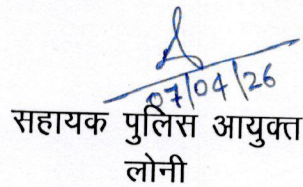 07/04/26
सहायक पुलिस आयुक्त
लोनी